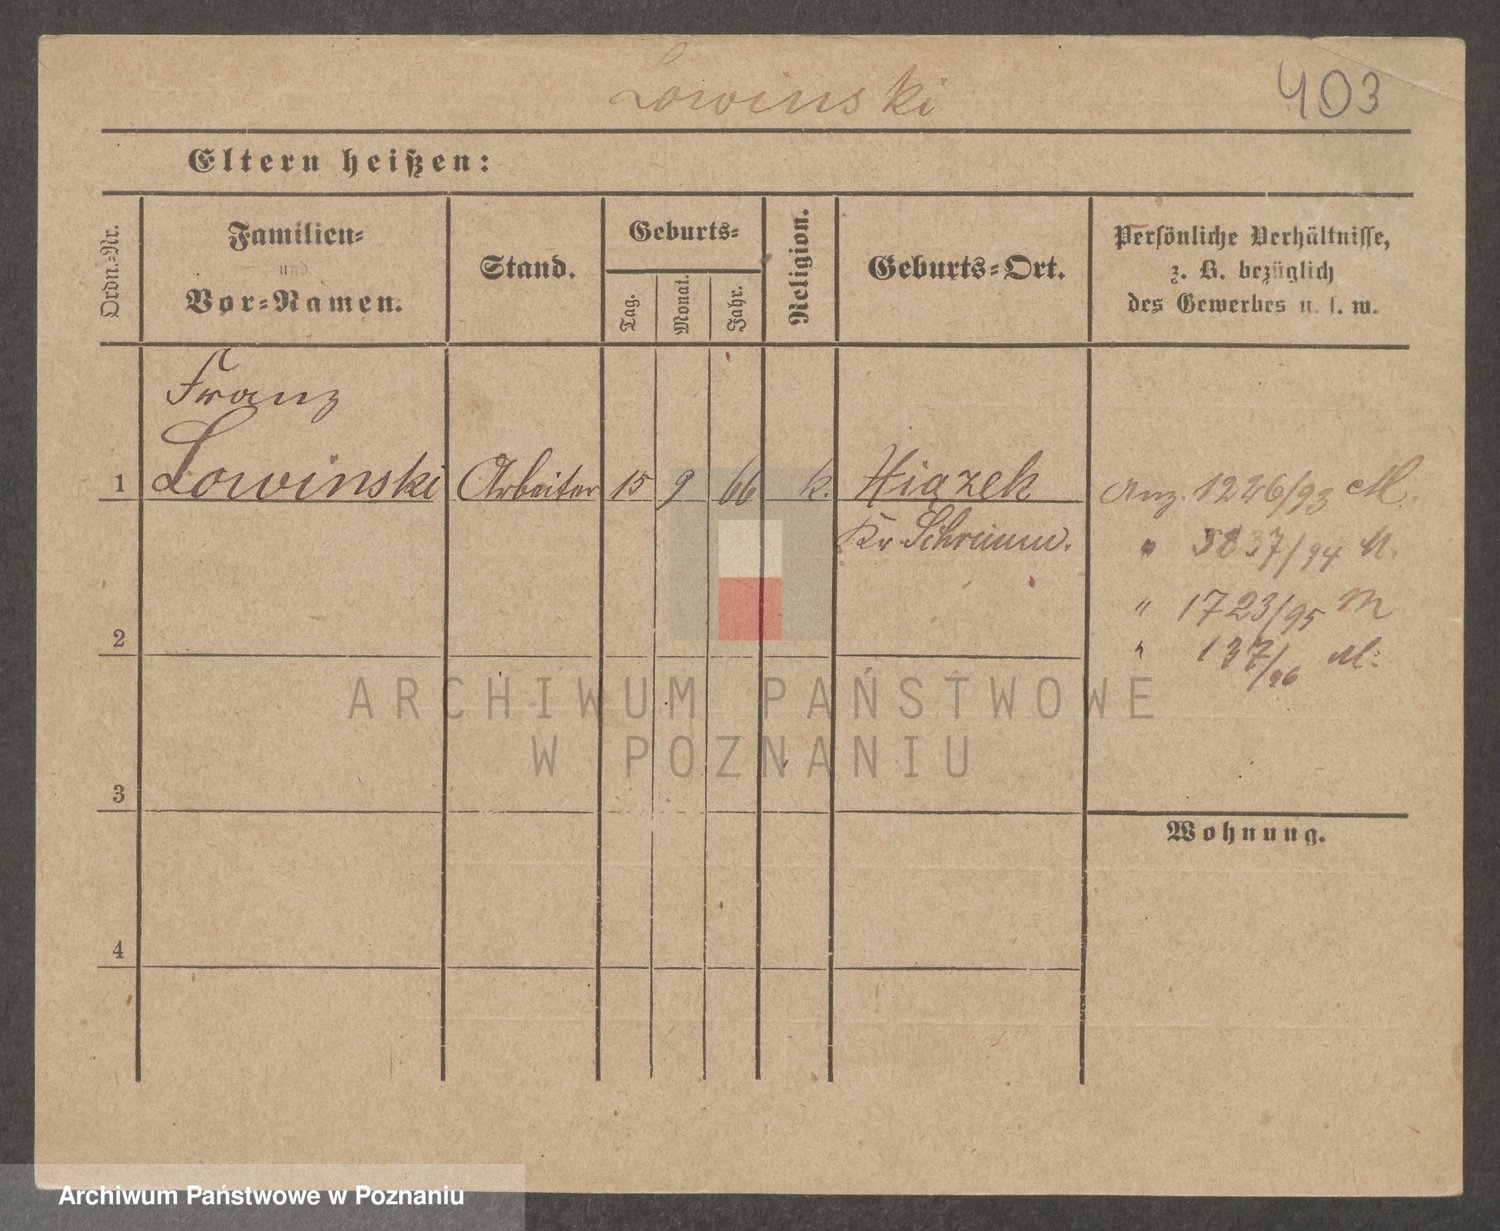 Lowinski
403
Eltern heißen:
Ordn.-Nr.
Familien-
und
Vor-Namen.
Stand.
Geburts-
Tag.
Monat.
Jahr.
Religion.
Geburts-Ort.
Persönliche Verhältnisse,
z. B. bezüglich
des Gewerbes u. s. w.
Franz
1 Lowinski Arbeiter 15 9 66 k. Xiązek Anz. 1226/93 M.
Kr Schrimm. " 3837/94 M.
" 1723/95 M
2
" 137/96 M.
ARCHIWUM PAŃSTWOWE
W POZNANIU
3
Wohnung.
4
Archiwum Państwowe w Poznaniu